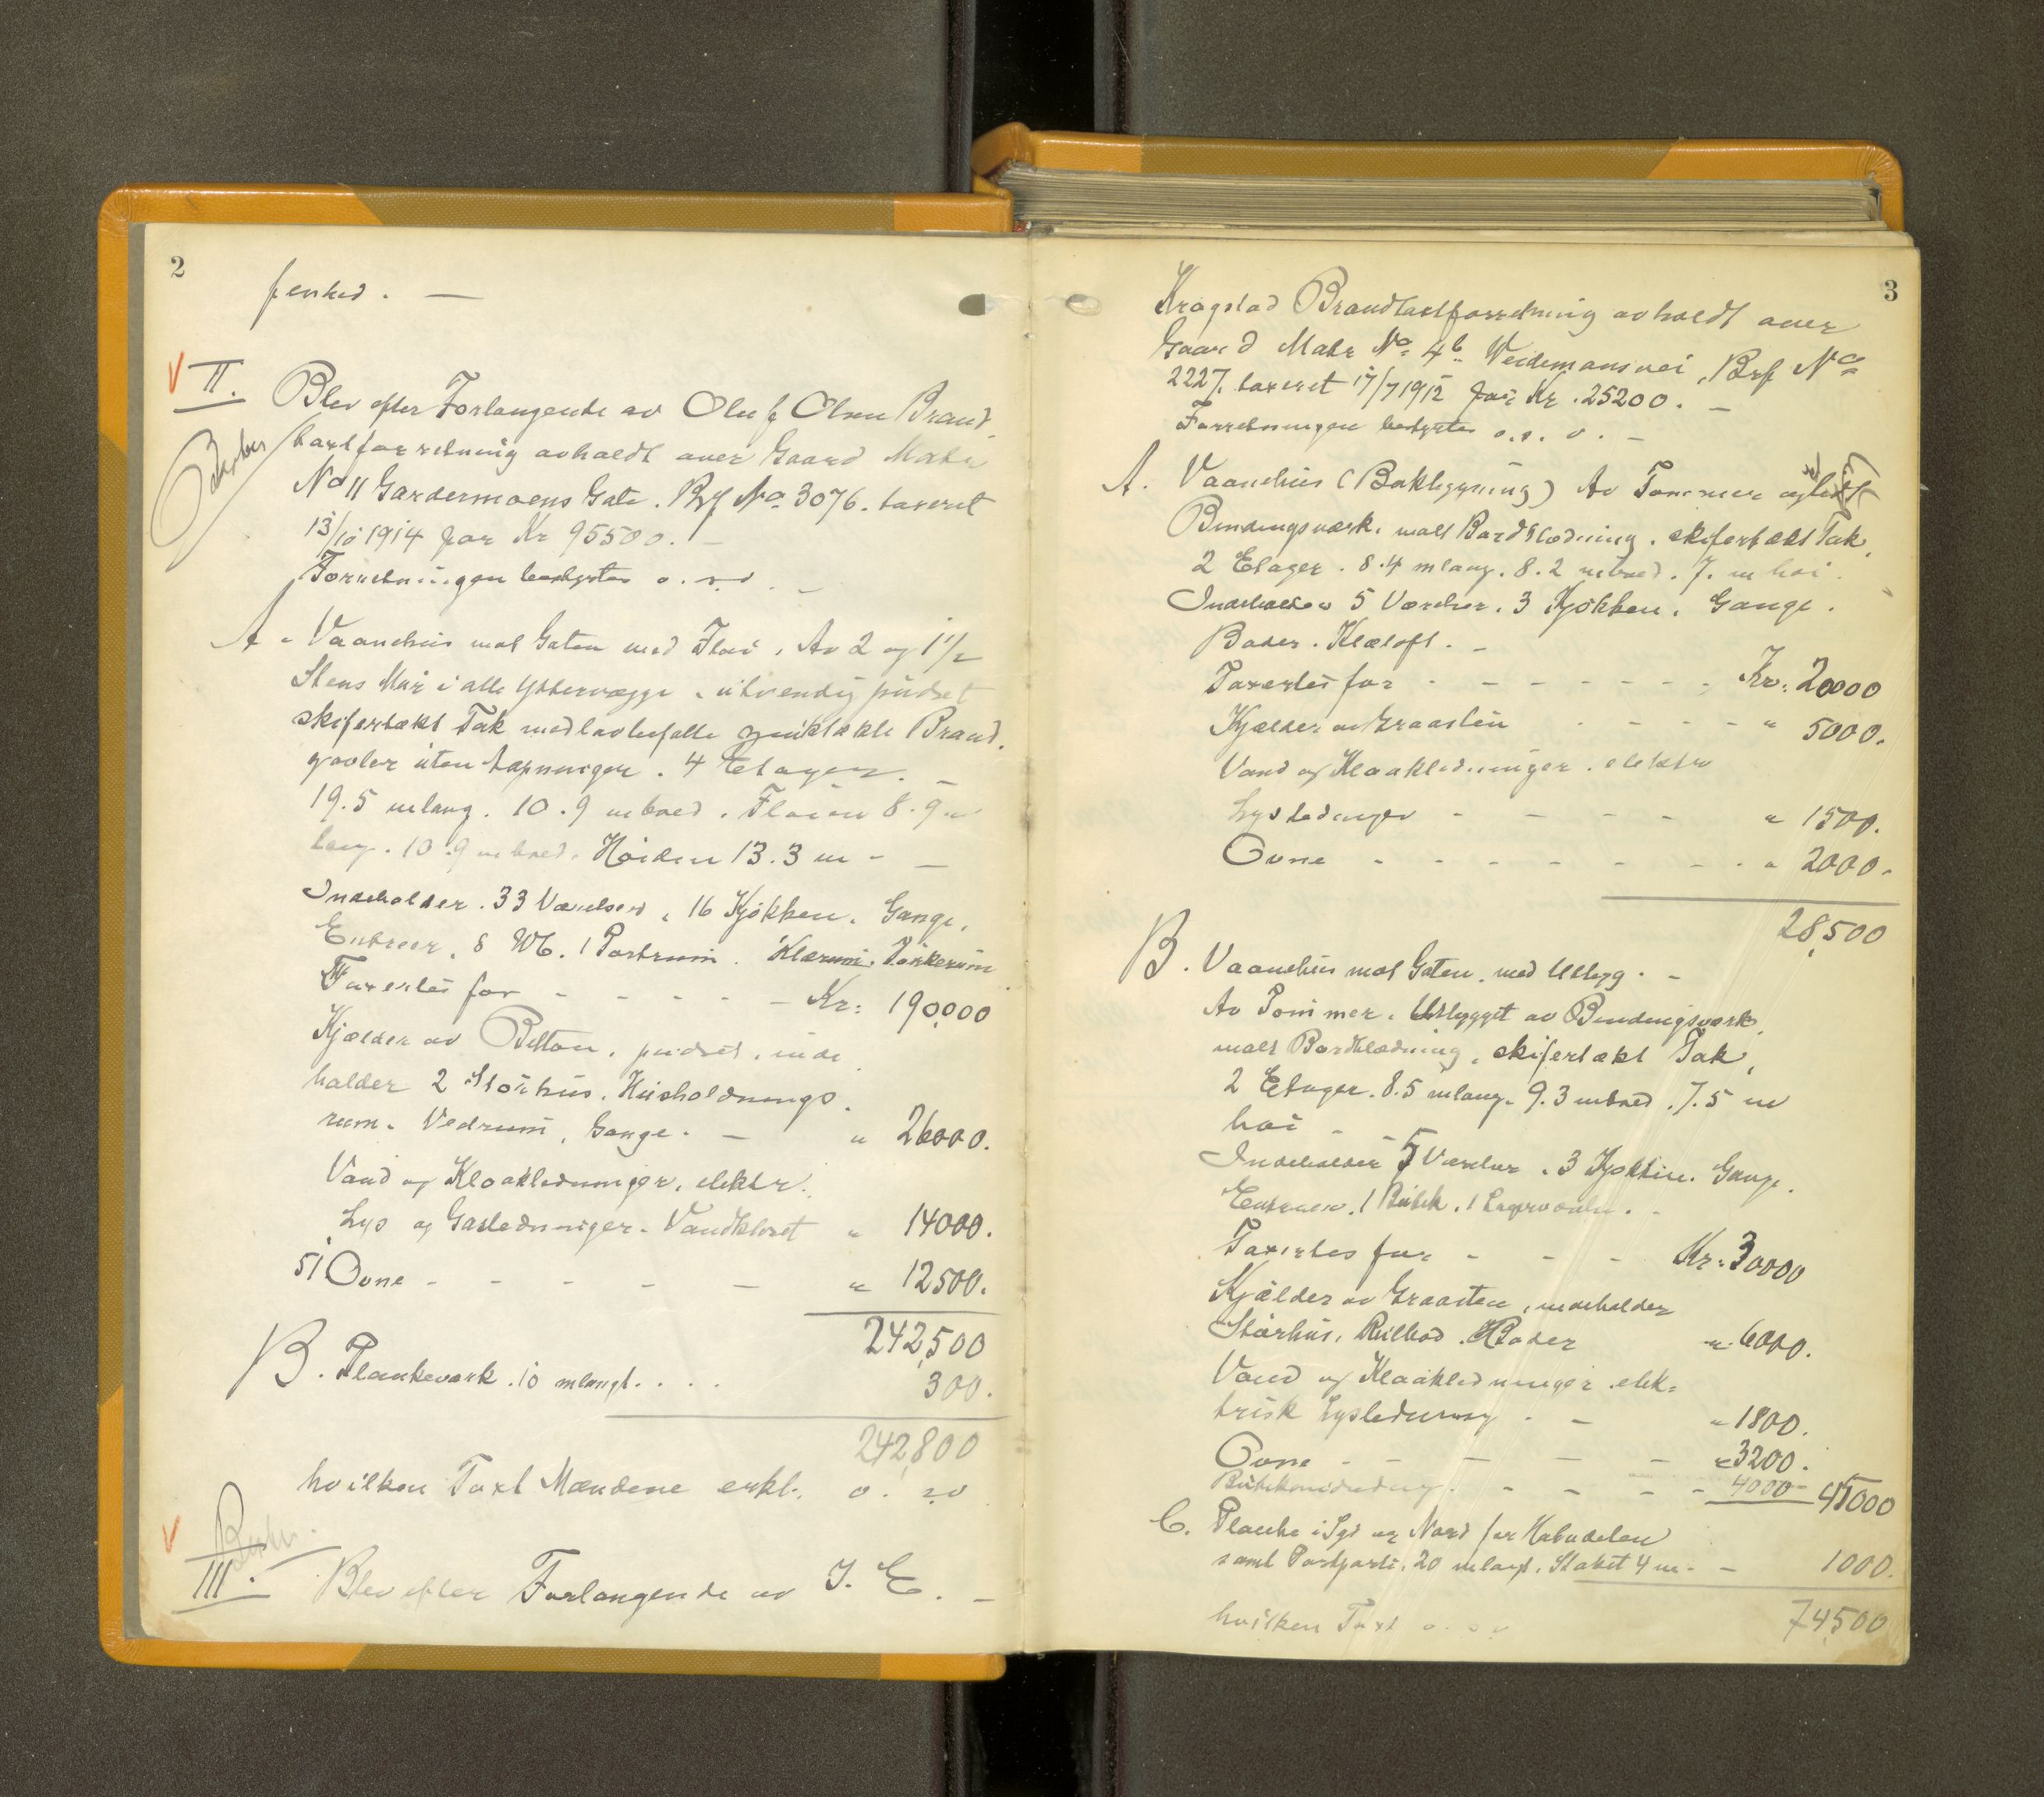 2
fenhed. —
V II. Blev efter Forlangende av Oluf Olsen Brand
taxtforretning avholdt over Gaard Matr
No 11 Gardermoens Gate. Brf No 3076. taxeret
13/10 1914 for Kr 95500. —
Forretningen bestyrtes o.s.v. —
A. Vaanehus mot Gaten med Fløi. Av 2 og 1 1/2
Stens Mur i alle Ydtervægge, utvendig pudset
skifertækt Tak med lavlufalle Brand
gavler uten tapninger. 4 Etager. —
19.5 m lang. 10.9 m bred. Fløien 8.9 m
lang. 10.9 m bred. Høiden 13.3 m - —
Indeholder. 33 Værelser, 16 Kjøkken, Gange,
Entreer, 8 WC. 1 Portrum. Klærum. Tørkerum
Taxertes for - - - - - Kr: 190,000
Kjælder av Betton, pudset, inde
holder 2 Storhus. Husholdnings
rum. Vedrum, Gange. — " 26000.
Vand og Kloakledninger, elektr.
Lys og Gasledninger - Vandkloset " 14000.
51 Ovne - - - - — " 12500.
242,500
B. Plankeværk. 10 m langt. . . . 300.
242,800
hvilken Taxt Mændene erkl. o. s.v
V
III. Blev efter Forlangende av J. E. —
3
Krogstad Brandtaxtforretning avholdt over
Gaard Matr No 4b Weidemansvei, Brf No
2227. taxeret 17/7 1912 for Kr. 25200. —
Forretningen bestyrtes o.s.v. —
A. Vaanehus (Bakbygning) Av Tømmer og
Bindingsværk. malt Bordklædning. skifertækt Tak,
2 Etager. 8.4 m lang. 8.2 m bred. 7. m høi.
Indeholder 5 Værelser. 3 Kjøkken, Gange.
Boder. Klæloft. -
Taxertes for - - - - - - - Kr: 20000
Kjælder av Graasten . - - - " 5000.
Vand og Kloakledninger. elektr
Lysledninger - - - - " 1500.
Ovne - - - - - - - " 2000.
28,500
B. Vaanehus mot Gaten. med Utbyg. -
Av Tømmer. Utbygget av Bindingsværk,
malt Bordklædning, skifertækt Tak,
2 Etager. 8.5 m lang. 9.3 m bred. 7.5 m
høi - -
Indeholder 5 Værelser. 3 Kjøkken. Gange.
Entreer. 1 Butik. 1 Lagerværelse. -
Taxertes for - - - Kr: 30000
Kjælder av Graasten, indeholder
Storhus, Rulbod. Boder " 6000.
Vand og Kloakledninger elek=
trisk Lysledning - - " 1800.
Ovne - - - - - " 3200.
Butiksinredning. - - - - 4000- 45000
C. Planke i Syd og Nord for
samt Portparti, 20 m langt, Stakit 4 m - - 1000.
hvilken Taxt o.s.v 74,500